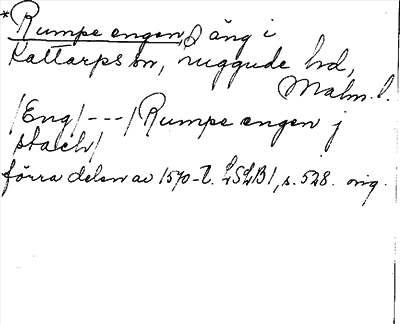 *Rumpe engen, äng i
Kattarps sn, Luggude hd,
Malm. l.
/Eng/ --- / Rumpe engen j
stach/
förra delen av 1570-t. LSLB1, s. 528. orig.